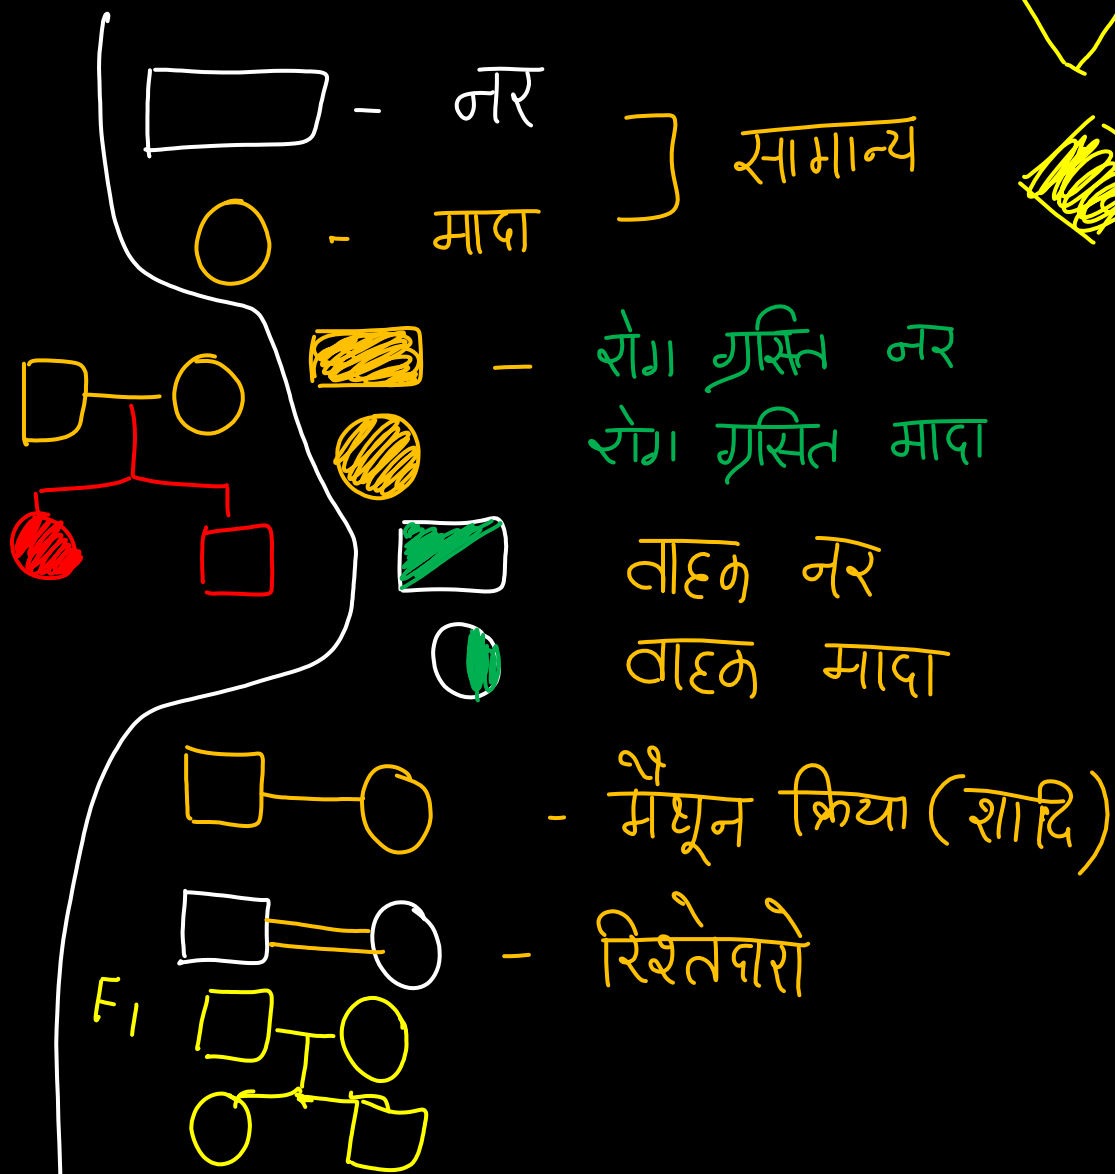 - नर
सामान्य
- मादा
- रोग ग्रसित नर
रोग ग्रसित मादा
वाहक नर
वाहक मादा
- मैथून क्रिया (शादि)
- रिश्तेदारो
F1